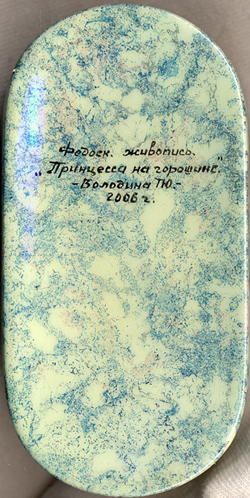 Федоск. живопись.
"Принцесса на горошине."
-Володина Т.Ю.-
2006 г.